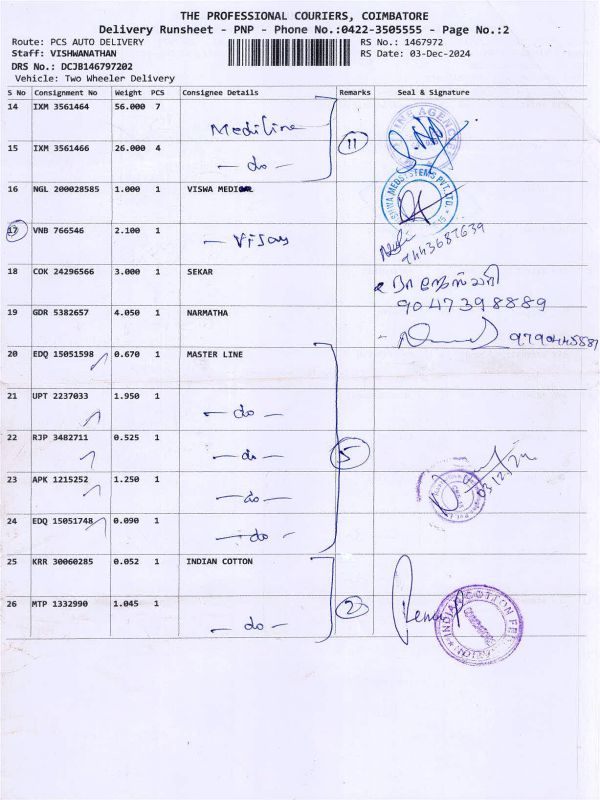 THE PROFESSIONAL COURIERS, COIMBATORE
Delivery Runsheet - PNP - Phone No.:0422-3505555 - Page No.:2
Route: PCS AUTO DELIVERY
RS No.: 1467972
Staff: VISHWANATHAN
RS Date: 03-Dec-2024
DRS No.: DCJB146797202
Vehicle: Two Wheeler Delivery
S No Consignment No Weight PCS Consignee Details Remarks Seal & Signature
14 IXM 3561464 56.000 7 Mediline
15 IXM 3561466 26.000 4 - do - 11
16 NGL 200028585 1.000 1 VISWA MEDICAL
17 VNB 766546 2.100 1 - Vijay
7443687639
18 COK 24296566 3.000 1 SEKAR
9047398889
19 GDR 5382657 4.050 1 NARMATHA
9790445587
20 EDQ 15051598 0.670 1 MASTER LINE
21 UPT 2237033 1.950 1 - do -
22 RJP 3482711 0.525 1 - do - 5
23 APK 1215252 1.250 1 - do - 03/12/24
24 EDQ 15051748 0.090 1 - do -
25 KRR 30060285 0.052 1 INDIAN COTTON
26 MTP 1332990 1.045 1 - do - 2
INDIAN COTTON FED